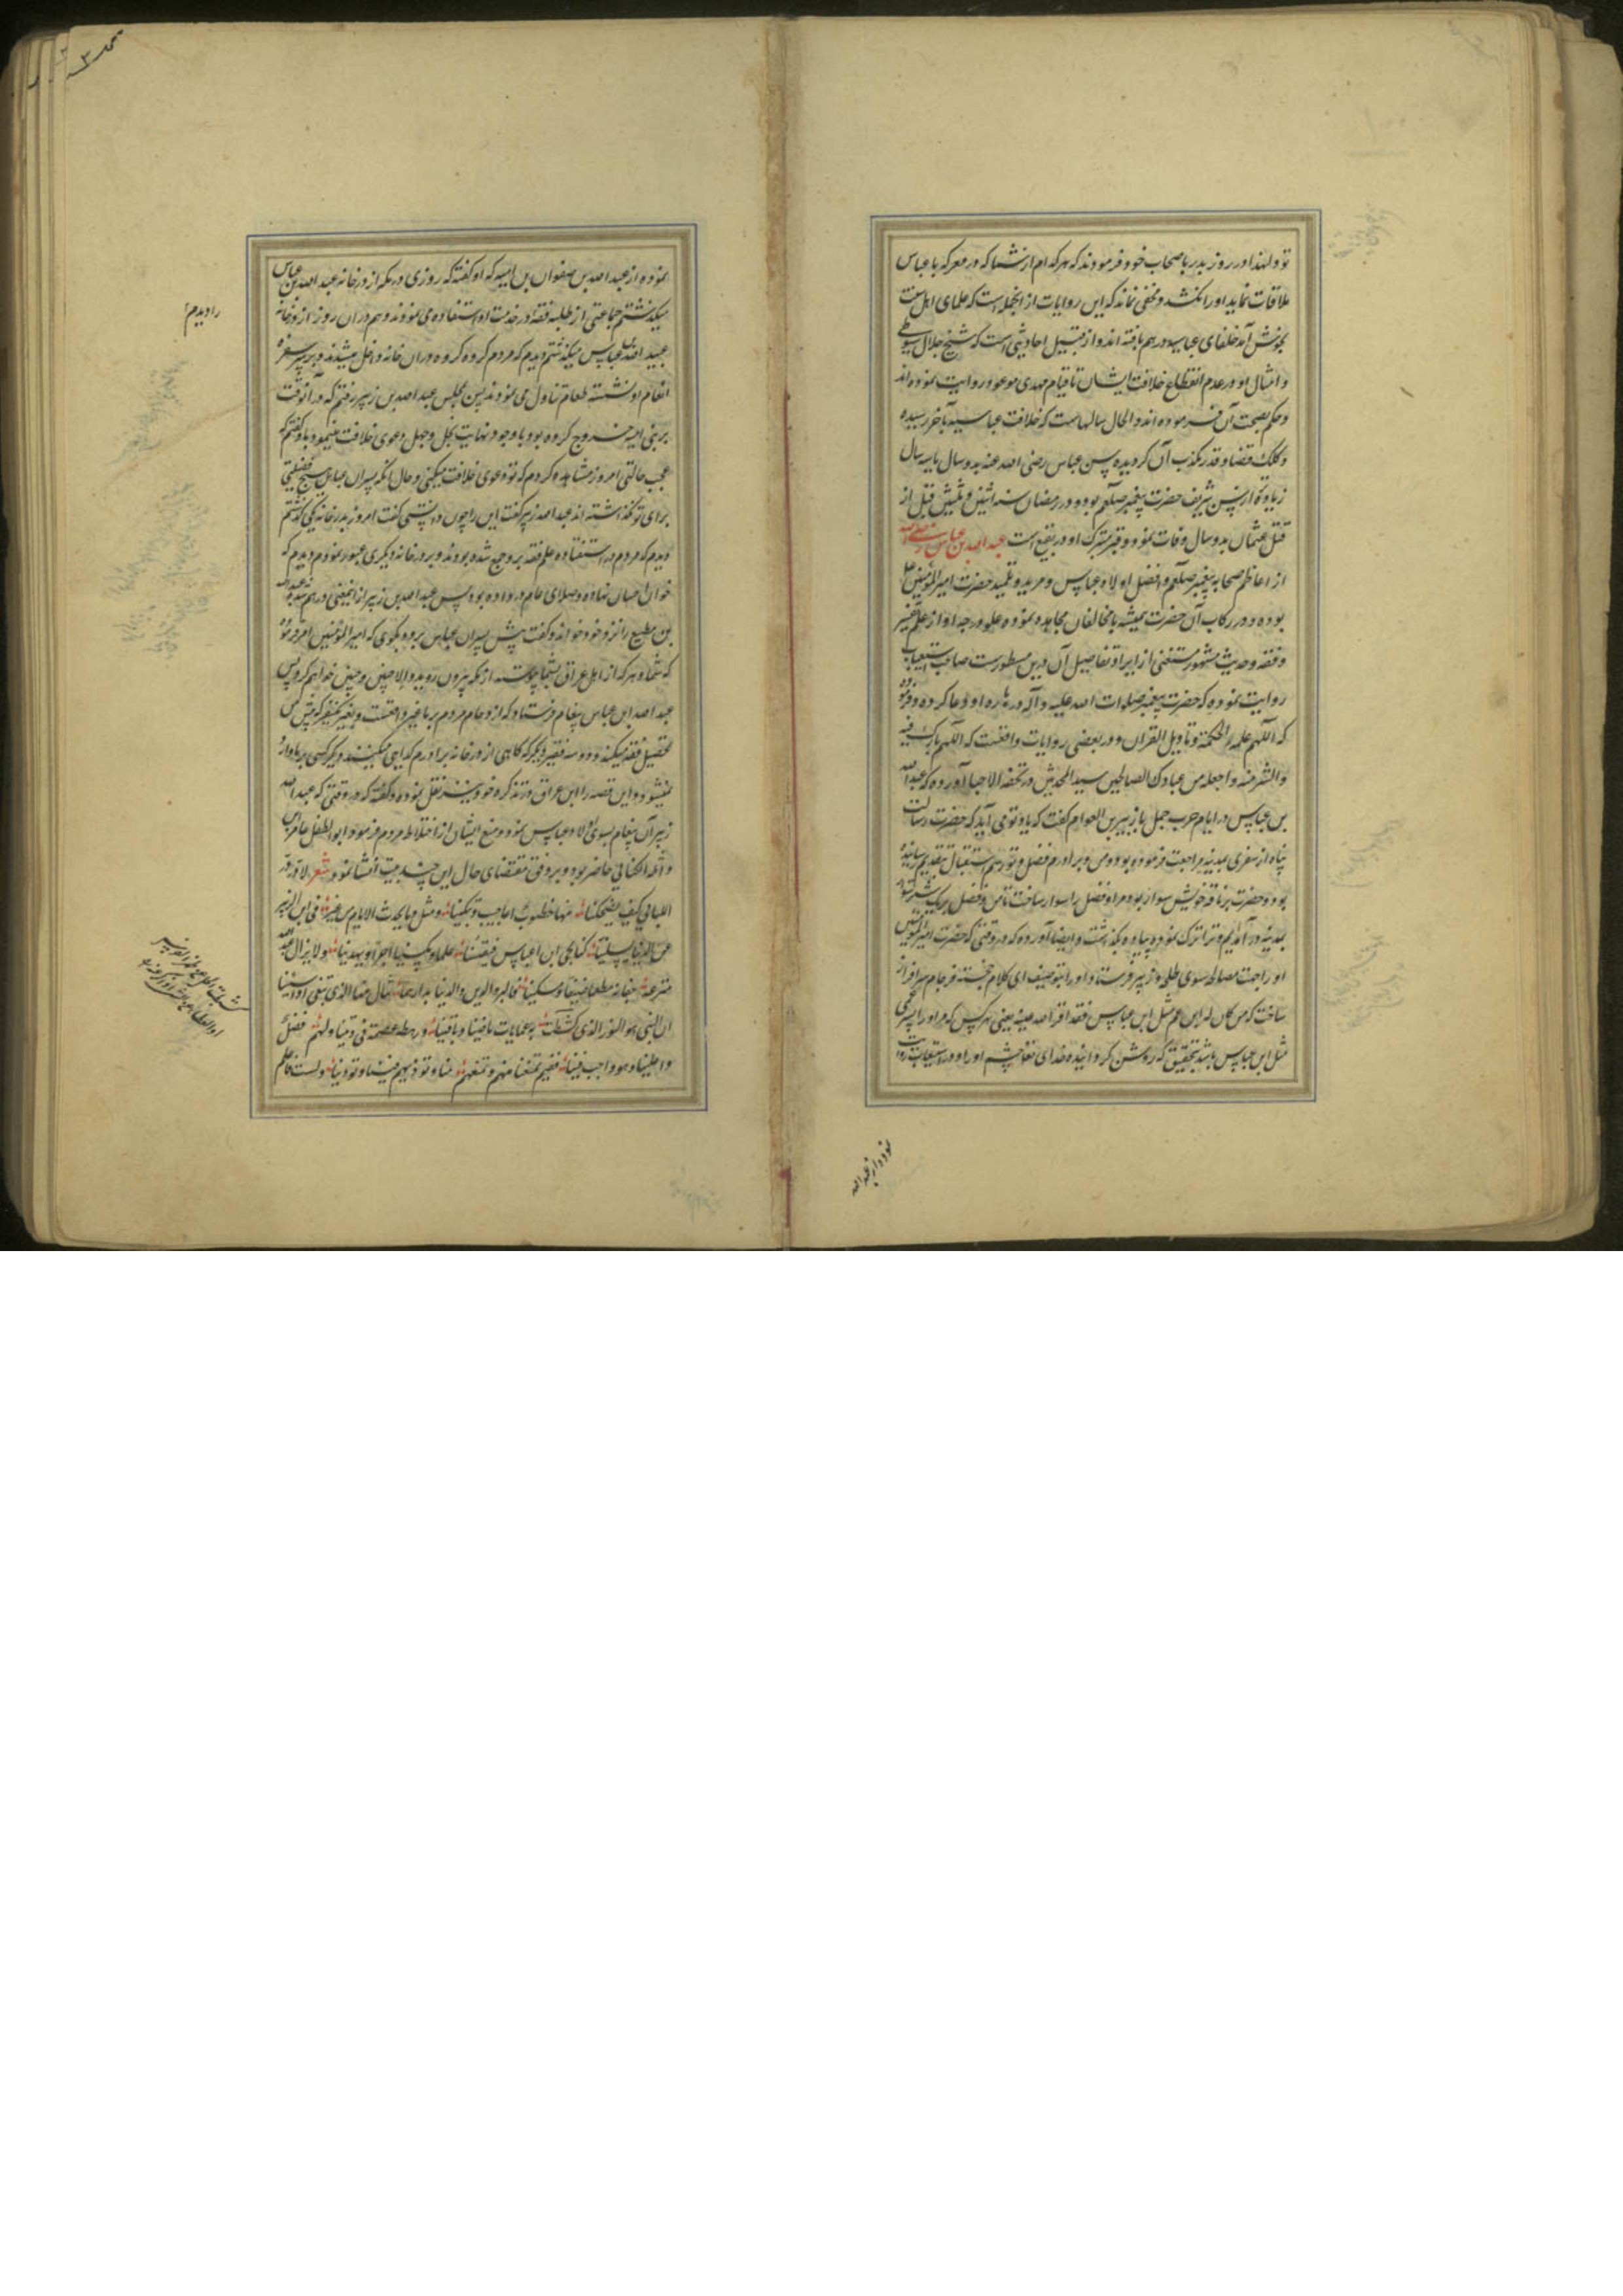 تو ولهذا در روز بدر باصحاب خود فرمودند که هرکدام از شما که در معرکه با عباس
ملاقات نماید او را نکشد و مخفی نماند که این روایات از انجمله است که علمای اهل سنت
بخوش آمد خلفای عباسیه در هم بافته اند و از قبیل احادیثی است که شیخ جلال سیوطی
و امثال او در عدم انقطاع خلافت ایشان تا قیام مهدی موعود روایت نموده اند
و حکم بصحت آن فرموده اند و الحال سالهاست که خلافت عباسیه بآخر رسیده
و کلک قضا و قدر مکذب آن کردیده سن عباس رضی الله عنه بدو سال یا سه سال
زیاده از سن شریف حضرت پیغمبر صلعم بوده و در رمضان سنه اثنین و ثلثین قبل از
قتل عثمان بدو سال وفات نمود و قبر متبرک او در بقیع است عبد الله بن عباس رضی الله
از اعاظم صحابه پیغمبر صلعم و افضل اولاد عباس و مرید و تلمیذ حضرت امیر المؤمنین علی
بوده و در رکاب آن حضرت همیشه با مخالفان مجاهده نموده علو درجه او از علم تفسیر
و فقه و حدیث مشهور مستغنی از ایراد تفاصیل آن درین مسطورست صاحب استیعاب
روایت نموده که حضرت پیغمبر صلوات الله علیه و آله در باره او دعا کرده و فرمود
که اللهم علمه الحکمة و تاویل القران و در بعضی روایات واقعست که اللهم بارک فیه
وانشر منه واجعله من عبادک الصالحین سید المحدثین در تحفه الاحبا آورده که عبد الله
بن عباس در ایام حرب جمل با زبیر بن العوام کفت که یاد تو می آید که حضرت رسالت
پناه از سفری بمدینه مراجعت فرموده بود و من و برادرم فضل و تو رسم استقبال بتقدیم رسانید
بود و حضرت بر ناقه خویش سوار بود مرا و فضل را سوار ساخت تا من و فضل بر یک شتر سوار
بمدینه در آمدیم و ترا ترک نمود پیاده بکذاشت و ایضا آورده که در وقتی که حضرت امیر المؤمنین
او را جهت مصالحه سوی طلحه و زبیر فرستاد او را بتوصیف ای کلام خجسته فرجام سرافراز
ساخت که من کان له ابن عم مثل ابن عباس فقد اقر الله عینه یعنی هر کس که مر او را پسر عمی
مثل ابن عباس باشد بتحقیق که روشن کردانیده خدای تعالی چشم او را و در استیعاب روایت
نموده و از عبد الله
نموده و از عبد الله بن صفوان بن امیه که او کفته که روزی در مکه از در خانه عبد الله بن عباس
میکذشتم جماعتی از طلبه فقه در خدمت او استفاده می نمودند و هم در ان روز از در خانه
را دیدم
عبید الله بن عباس میکذشتم دیدم که مردم کروه کروه در ان خانه داخل میشدند و بر سر سفره
انعام او نشسته طعام تناول می نمودند پس بمجلس عبد الله بن زبیر رفتم که در آنوقت
بر بنی امیه خروج کرده بود و با وجود نهایت بخل و جهل دعوی خلافت مینمود و باو کفتم که
عجب حالتی امروز مشاهده کردم که تو دعوی خلافت میکنی و حال انکه پسران عباس هیچ فضیلتی
برای تو نکذاشته اند عبد الله زبیر کفت این را چون دانستی کفت امروز بدر خانه یکی کذشتم
دیدم که مردم در استفاده علم فقه برو جمع شده بودند و بر در خانه دیکری عبور نمودم دیدم که
خوان احسان نهاده و صلای عام در داده بود پس عبد الله بن زبیر ازین معنی در هم شد و عبد الله
بن مطیع را نزد خود خواند و کفت پیش پسران عباس برو و بکوی که امیر المؤمنین امر فرموده
که شما و هر که از اهل عراق بشما پیوسته از مکه بیرون روید و الا چنین و چنین خواهم کرد پس
عبد الله ابن عباس پیغام فرستاد که ازدحام مردم بر ما غیر واقعست و بغیر یکنفر که پیش من
تحصیل فقه میکند و دو سه فقیر دیکر که کاهی از در خانه برادرم کدایی میکنند دیکر کسی بر ما وارد
نمیشود و این قصه را ابن عراق در تذکره خود نیز نقل نموده و کفته که در وقتی که عبد الله
زبیر آن پیغام بسوی اولاد عباس نمود و منع ایشان از اختلاط مردم فرمود ابو الطفیل عامر بن
واثله الکنانی حاضر بود و بر وفق مقتضای حال این چند بیت انشا نمود شعر لا در در
اللیالی کیف یضحکنا منها خطوب اعاجیب و تبکینا و مثل ما یحدث الایام من غیر فی ابن الزبیر
عن الدنیا یسلینا کنا نجی ابن عباس فیقبسنا علما و یکسبنا اجرا و یهدینا و لا یزال عبید الله
مترعة جفانه مطعما ضیفا و مسکینا فالبر و الدین و الدنیا بدارهما ننال منها الذی نبغی اذا شینا
ان النبی هو النور الذی کشطت به عمایات ماضینا و باقینا و رهطه عصمة فی دیننا و لهم فضل
و احلینا و هو واجب فینا ففیم تمنعنا منهم و تمنعهم منا و توذیهم فینا و توذینا و لست فاعلم